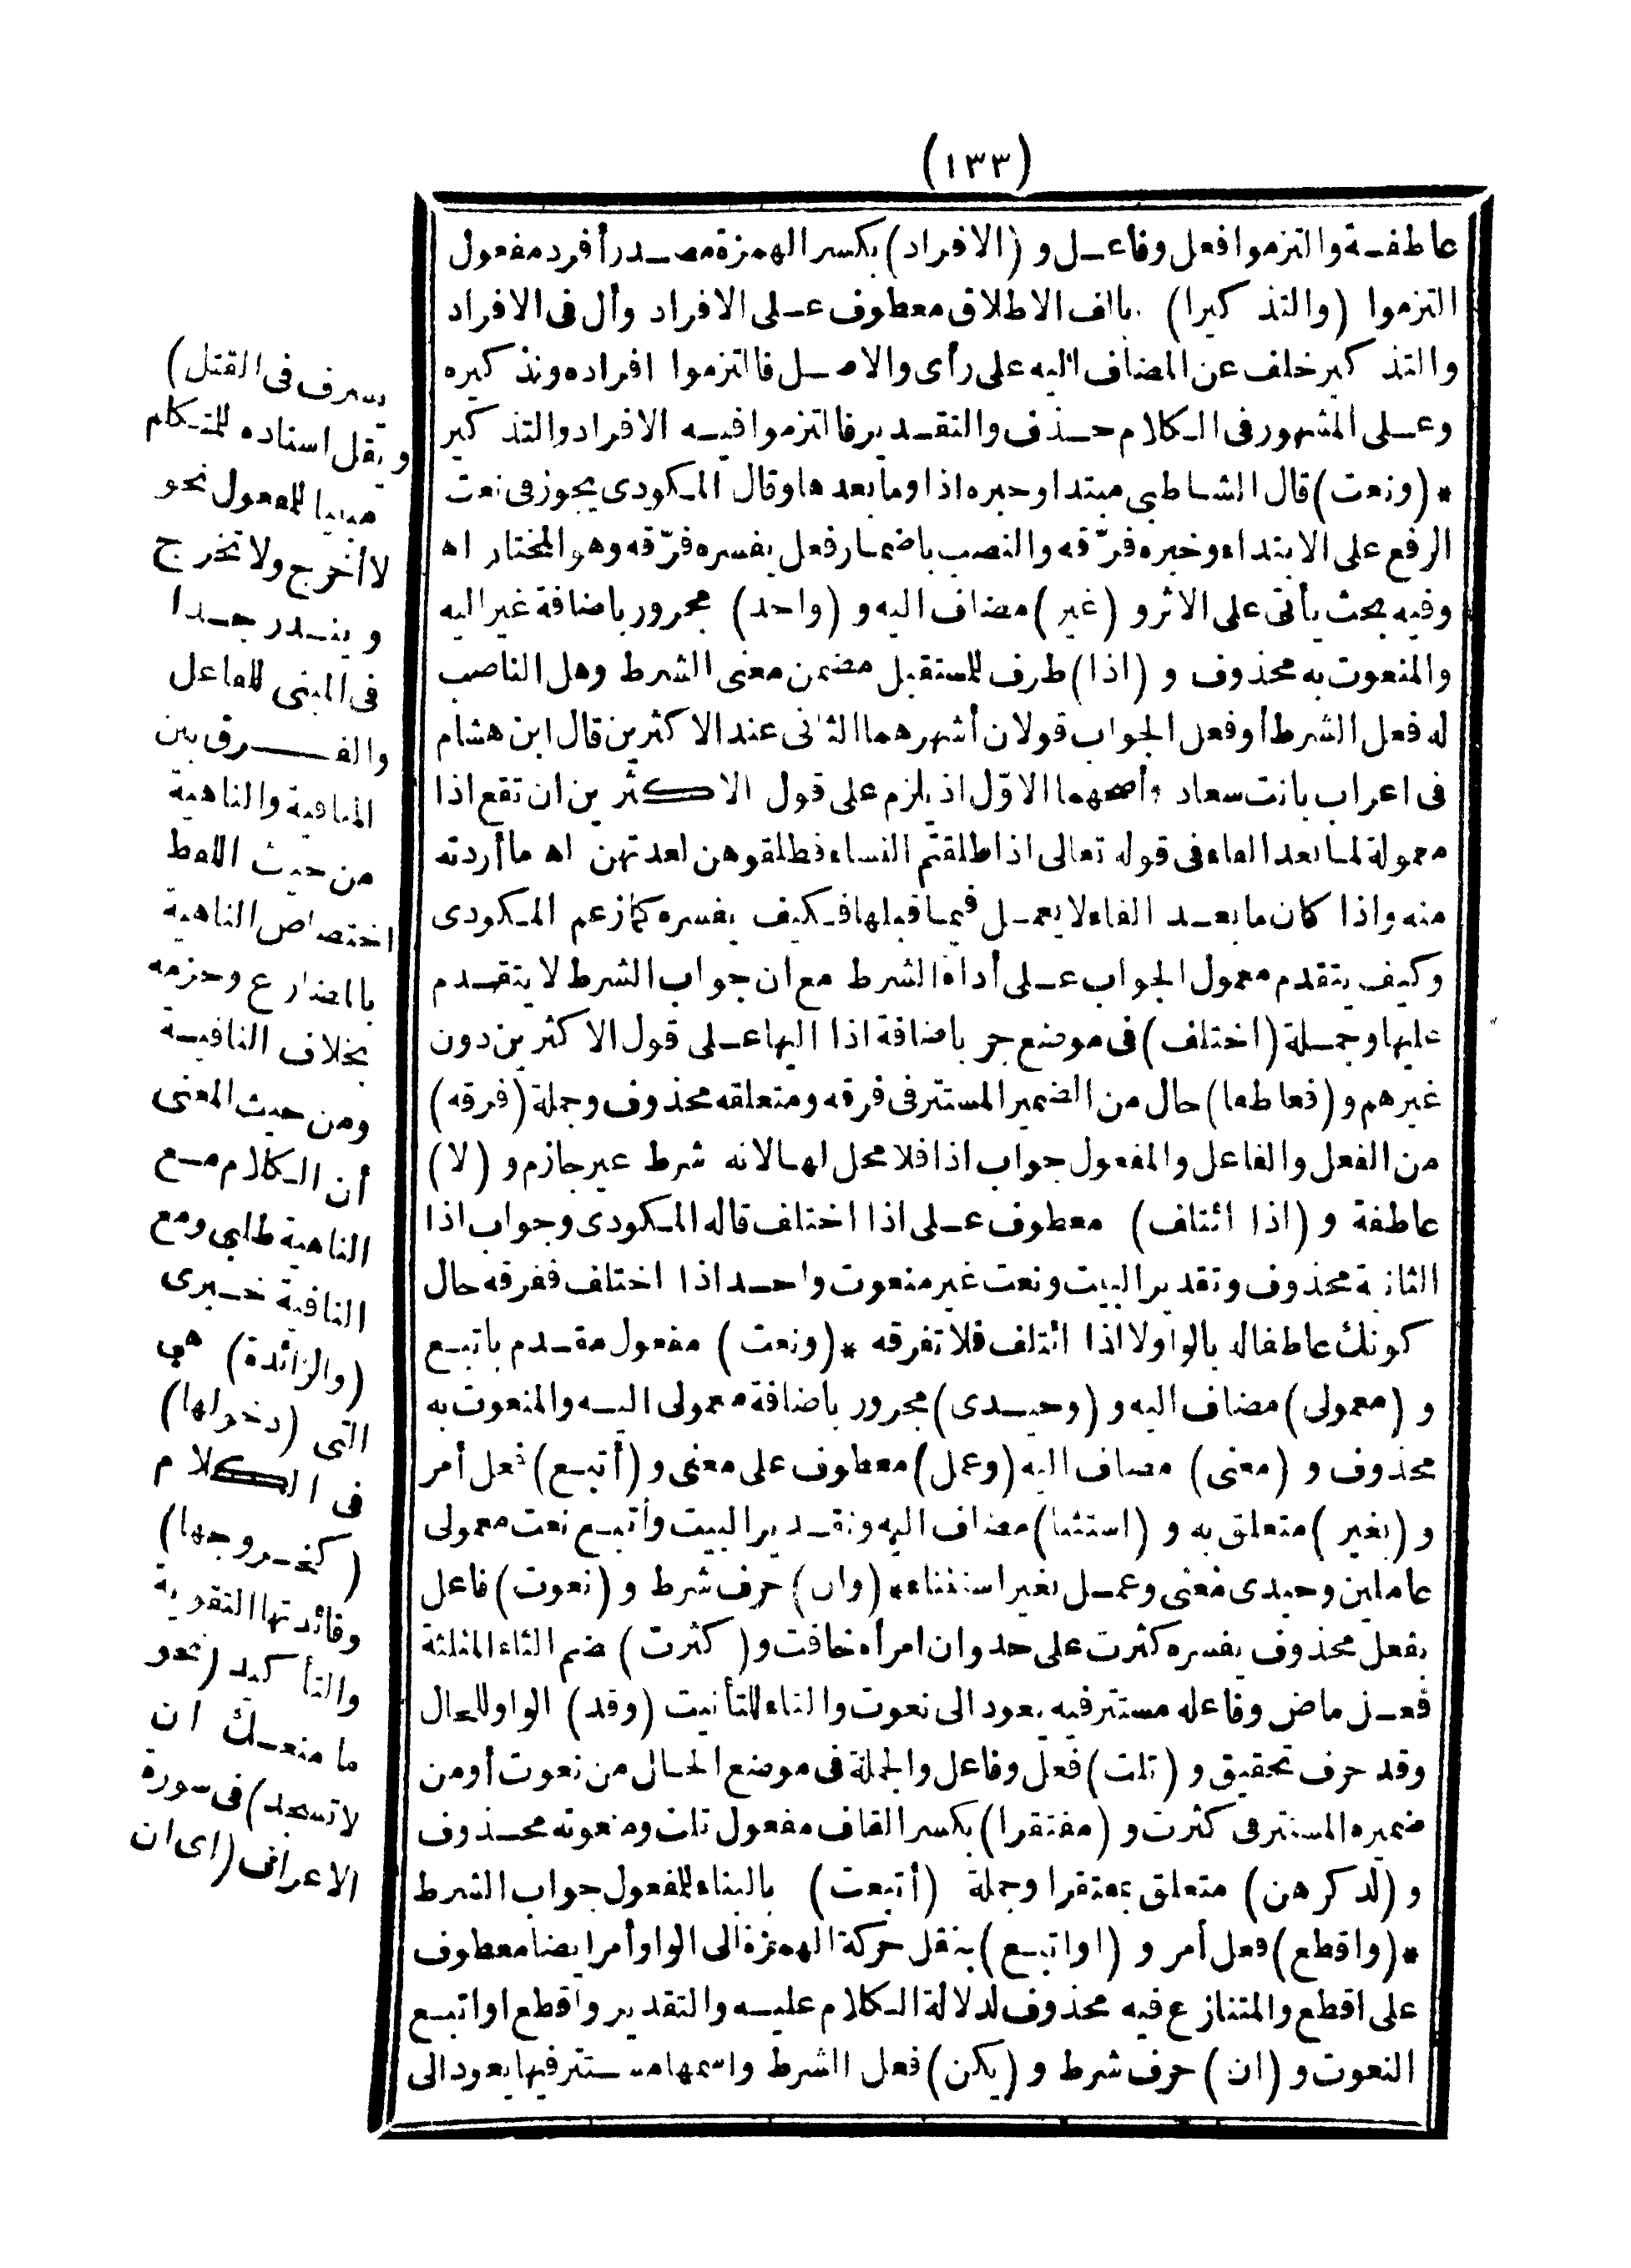 (١٣٣)
عاطفة والتزموا فعل وفاعل و (الافراد) بكسر الهمزة مصدر أفرد مفعول
التزموا (والتذكيرا) بالف الاطلاق معطوف على الافراد وأل فى الافراد
والتذكير خلف عن المضاف اليه على رأى والاصل فالتزموا افراده وتذكيره
وعلى المشهور فى الكلام حذف والتقدير فالتزموا فيه الافراد والتذكير
* (ونعت) قال الشاطبي مبتدا وخبره اذا وما بعدها وقال المكودى يجوز فى نعت
الرفع على الابتداء وخبره فرّقه والنصب باضمار فعل يفسره فرّقه وهو المختار اه
وفيه بحث يأتى على الاثر و (غير) مضاف اليه و (واحد) مجرور باضافة غير اليه
والمنعوت به محذوف و (اذا) ظرف للمستقبل مضمن معنى الشرط وهل الناصب
له فعل الشرط أو فعل الجواب قولان أشهرهما الثانى عند الاكثرين قال ابن هشام
فى اعراب بانت سعاد وأصحهما الاوّل اذ يلزم على قول الاكثرين ان تقع اذا
معمولة لما بعد الفاء فى قوله تعالى اذا طلقتم النساء فطلقوهن لعدتهن اه ما أردته
منه واذا كان ما بعد الفاء لا يعمل فيما قبلها فكيف يفسره كما زعم المكودى
وكيف يتقدم معمول الجواب على أداة الشرط مع ان جواب الشرط لا يتقدم
عليها وجملة (اختلف) فى موضع جر باضافة اذا اليها على قول الاكثرين دون
غيرهم و (فعاطفا) حال من الضمير المستتر فى فرقه ومتعلقه محذوف وجملة (فرقه)
من الفعل والفاعل والمفعول جواب اذا فلا محل لها لانه شرط غير جازم و (لا)
عاطفة و (اذا ائتلف) معطوف على اذا اختلف قاله المكودى وجواب اذا
الثانية محذوف وتقدير البيت ونعت غير منعوت واحد اذا اختلف ففرقه حال
كونك عاطفا له بالواو لا اذا ائتلف فلا تفرقه * (ونعت) مفعول مقدم باتبع
و (معمولى) مضاف اليه و (وحيدى) مجرور باضافة معمولى اليه والمنعوت به
محذوف و (معنى) مضاف اليه (وعمل) معطوف على معنى و (أتبع) فعل أمر
و (بغير) متعلق به و (استثنا) مضاف اليه وتقدير البيت وأتبع نعت معمولى
عاملين وحيدى معنى وعمل بغير استثناء * (وان) حرف شرط و (نعوت) فاعل
بفعل محذوف يفسره كثرت على حد وان امرأة خافت و (كثرت) ضم الثاء المثلثة
فعل ماض وفاعله مستتر فيه يعود الى نعوت والتاء للتأنيث (وقد) الواو للحال
وقد حرف تحقيق و (تلت) فعل وفاعل والجملة فى موضع الحال من نعوت أو من
ضميره المستتر فى كثرت و (مفتقرا) بكسر القاف مفعول تلت ومنعوته محذوف
و (لذكرهن) متعلق بمفتقرا وجملة (أتبعت) بالبناء للمفعول جواب الشرط
* (واقطع) فعل أمر و (اواتبع) بنقل حركة الهمزة الى الواو أمر ايضا معطوف
على اقطع والمتنازع فيه محذوف لدلالة الكلام عليه والتقدير واقطع او اتبع
النعوت و (ان) حرف شرط و (يكن) فعل الشرط واسمها مستتر فيها يعود الى
يسرف فى القتل)
ويقل اسناده للمتكلم
مبنيا للمفعول نحو
لا أخرج ولا تخرج
ويندر جدا
فى المبنى للفاعل
والفرق بين
النافية والناهية
من حيث اللفظ
اختصاص الناهية
بالمضارع وجزمه
بخلاف النافية
ومن حيث المعنى
أن الكلام مع
الناهية طلبي ومع
النافية خبرى
(والزائدة) هي
التى (دخولها)
فى الكلام
(كخروجها)
وفائدتها التقوية
والتأكيد (نحو
ما منعك ان
لا تسجد) فى سورة
الاعراف (اى ان